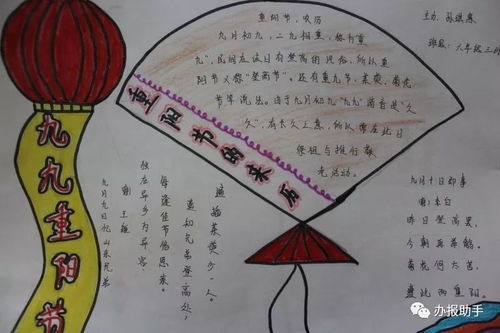 重阳节，农历
九月初九，二九相重，称为"重
九"，民间在该日有登高的风俗，所以重
阳节又称"登高节"。还有重九节、茱萸、菊花
节等说法。由于九月初九"九九"谐音是"久
久"，有长久之意，所以常在此日
祭祖与推行敬
老活动。
主办：孙
班级：六年级三班
重阳节的来历
九九重阳节
九月九日忆山东兄弟
唐 王维
独在异乡为异客
每逢佳节倍思亲。
遥知兄弟登高处，
遍插茱萸少一人。
九月十日即事
唐：李白
昨日登高罢，
今朝再举觞。
菊花何太苦，
遭此两重阳。
办报助手